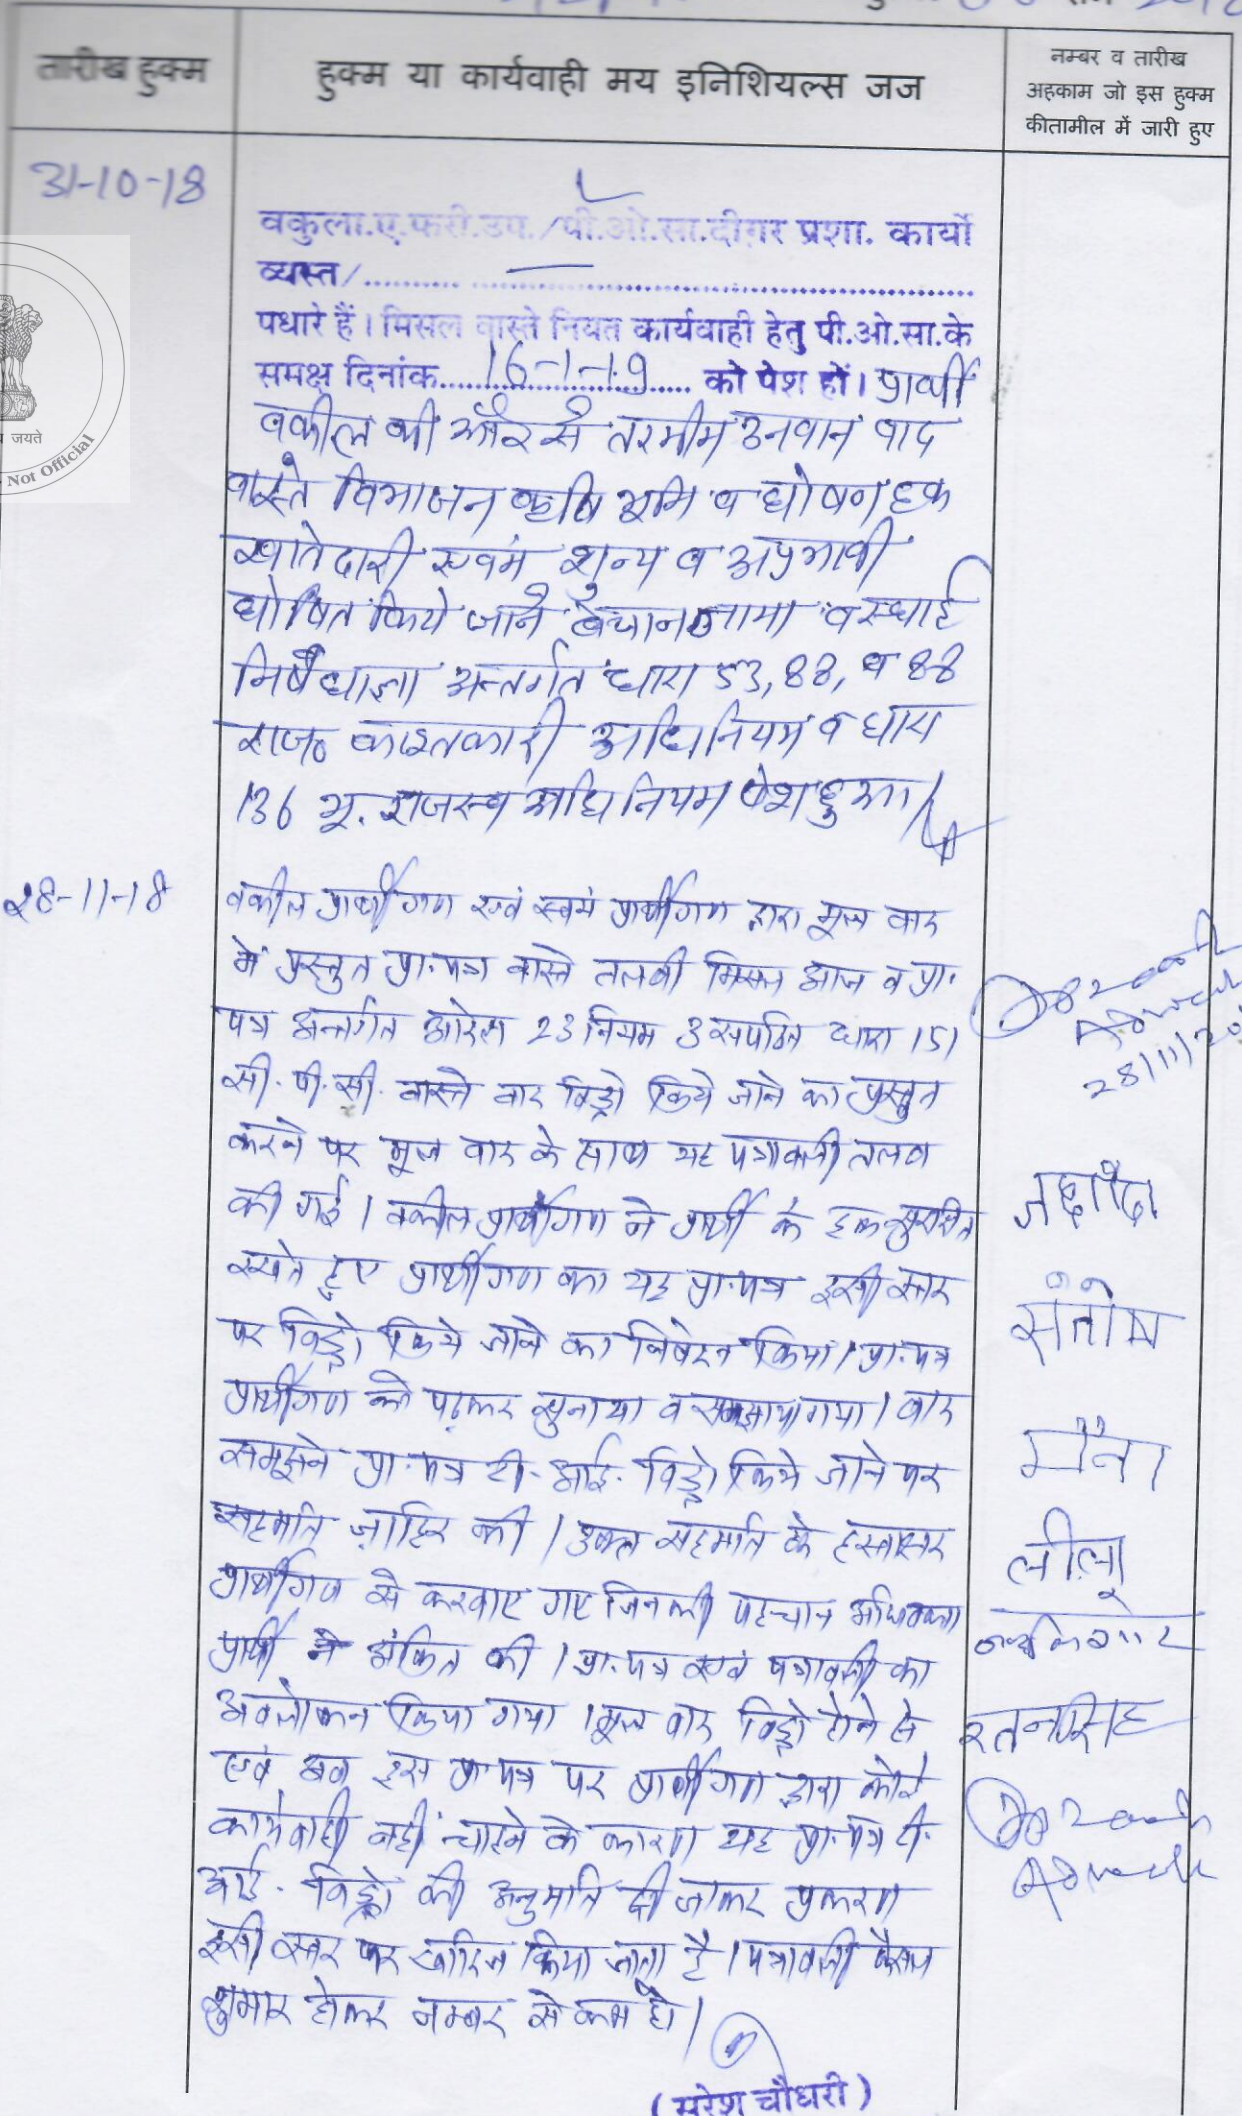 तारीख हुक्म
हुक्म या कार्यवाही मय इनिशियल्स जज
नम्बर व तारीख
अहकाम जो इस हुक्म
कीतामील में जारी हुए
31-10-18
वकुला.ए.फरी.उप./पी.ओ.सा.दीगर प्रशा. कार्यो
व्यस्त/
पधारे हैं। मिसल वास्ते नियत कार्यवाही हेतु पी.ओ.सा.के
समक्ष दिनांक 16-1-19 को पेश हों। प्रार्थी
वकील की और से तरमीम उनवान वाद
वास्ते विभाजन कृषि भूमि व घोषणा हक
खातेदारी एवंम शुन्य व अप्रभावी
घोषित किये जाने बेचाननामा व स्थाई
निषैधाज्ञा अन्तर्गत धारा 53, 88, व 88
राज० काश्तकारी अधिनियम व धारा
136 भू. राजस्व अधिनियम पेश हुआ।
28-11-18
वकील प्रार्थीगण एवं स्वयं प्रार्थीगण द्वारा मूल वाद
में प्रस्तुत प्रा.पत्र वास्ते तलबी मिसल आज व प्रा.
पत्र अन्तर्गत आदेश 23 नियम 3 सपठित धारा 151
सी. पी. सी. वास्ते वाद विड्रो किये जाने का प्रस्तुत
करने पर मूल वाद के साथ यह पत्रावली तलब
की गई। वकील प्रार्थीगण ने प्रार्थी के हक सुरक्षित
रखते हुए प्रार्थीगण का यह प्रा.पत्र इसी स्तर
पर विड्रो किये जाने का निवेदन किया। प्रा.पत्र
प्रार्थीगण को पढ़कर सुनाया व समझाया गया। बाद
समझने प्रा.पत्र टी. आई. विड्रो किये जाने पर
सहमति जाहिर की। उक्त सहमति के हस्ताक्षर
प्रार्थीगण से करवाए गए जिनकी पहचान अधिवक्ता
प्रार्थी ने अंकित की। प्रा.पत्र एवं पत्रावली का
अवलोकन किया गया। मूल वाद विड्रो होने से
एवं अब इस प्रा.पत्र पर प्रार्थीगण द्वारा कोई
कार्यवाही नहीं चाहने के कारण यह प्रा.पत्र टी.
आई. विड्रो की अनुमति दी जाकर प्रकरण
इसी स्तर पर खारिज किया जाता है। पत्रावली फैसल
शुमार होकर नम्बर से कम हो।
28/11/20
संतोष
मैना
लीलू
रतनसिंह
(सुरेश चौधरी)
जयते
Not Official